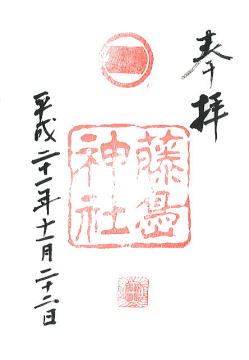 奉拝
藤島
神社
平成二十一年十一月二十二日